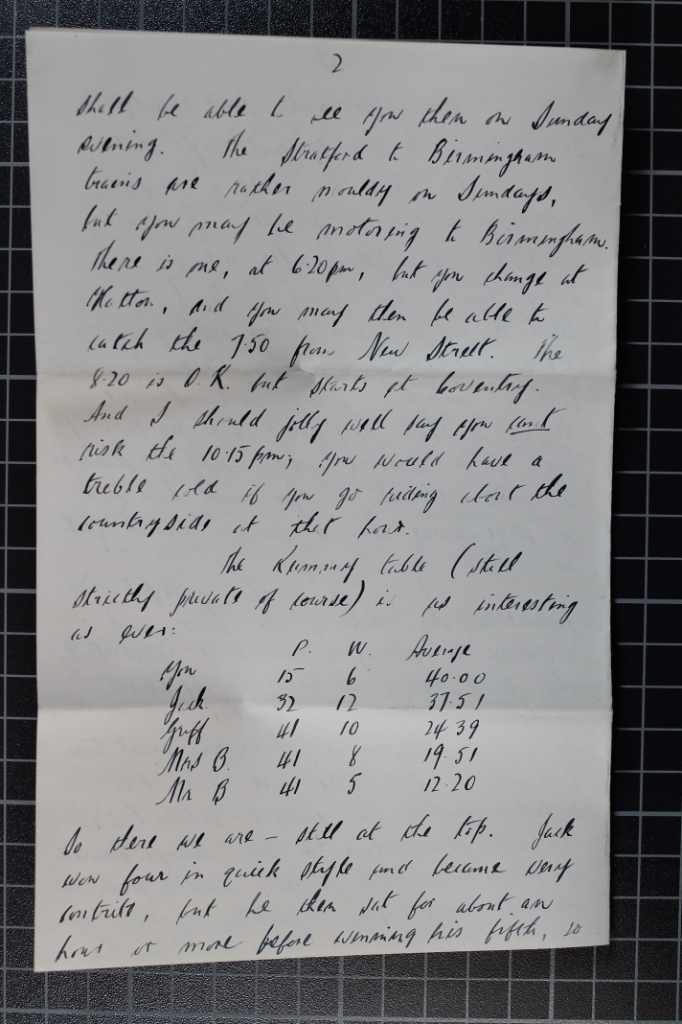 2
shall be able to see you then on Sunday
evening. The Stratford to Birmingham
trains are rather mouldy on Sundays,
but you may be motoring to Birmingham.
There is one, at 6.20pm, but you change at
Hatton, and you may then be able to
catch the 7.50 from New Street. The
8.20 is O.K. but starts at Coventry.
And I should jolly well say you can't
risk the 10.15pm; you would have a
treble cold if you go riding about the
countryside at that hour.
The Rummy table (still
strictly private of course) is as interesting
as ever:
P. W. Average
You 15 6 40.00
Jack 32 12 37.51
Griff 41 10 24.39
Mrs B. 41 8 19.51
Mr B 41 5 12.20
So there we are – still at the top. Jack
won four in quick style and became very
contrite, but he then sat for about an
hour or more before winning his fifth, so